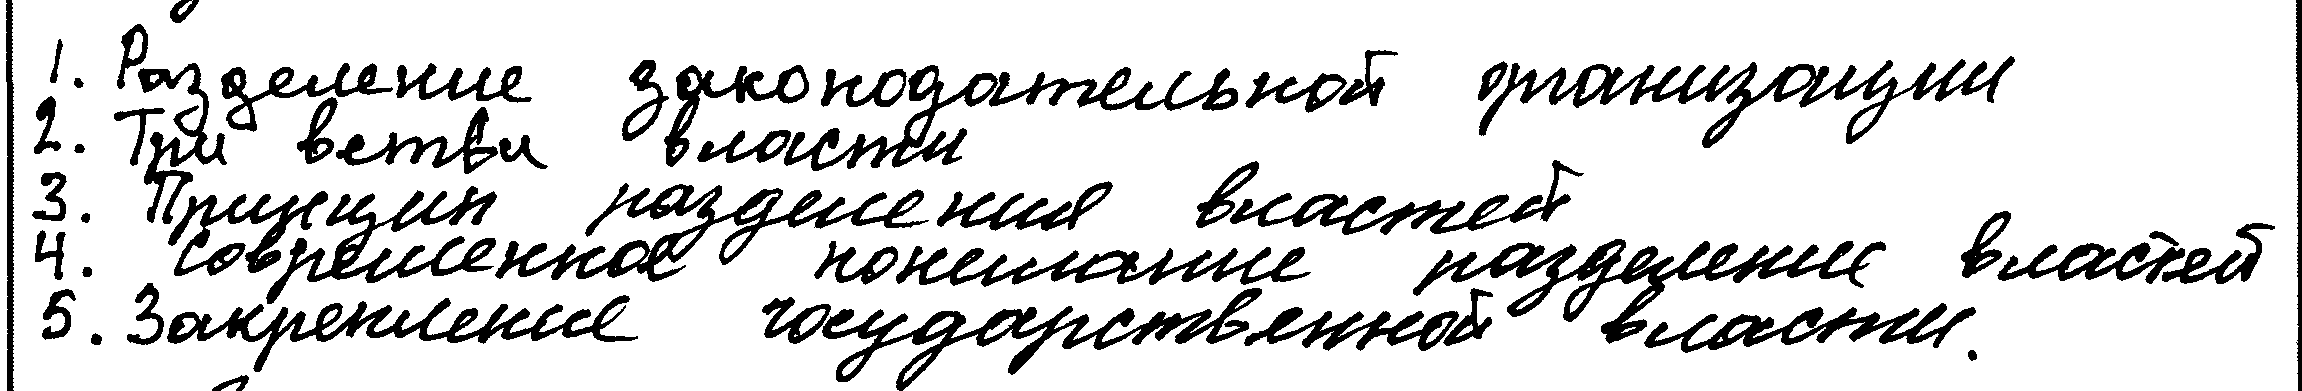 1. Разделение законодательной организации
2. Три ветви власти
3. Принцип разделения властей
4. Современное понемание разделение властей
5. Закрепление государственной власти.